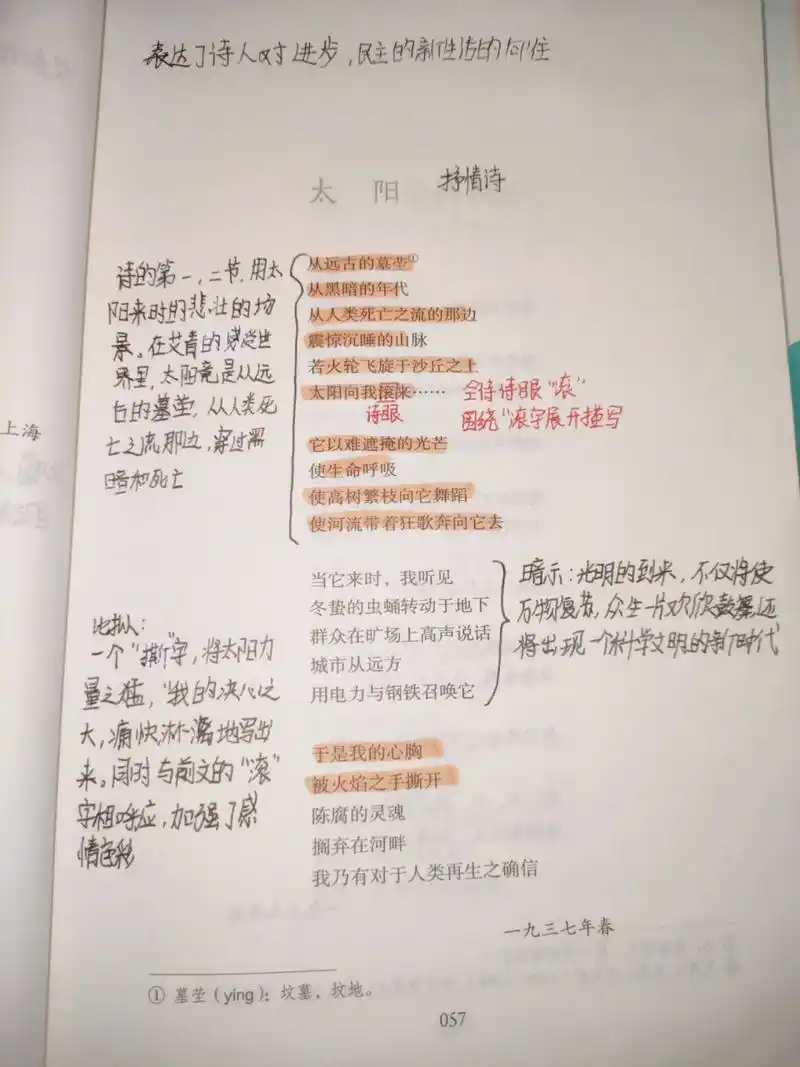 表达了诗人对进步,民主的新生活的向往
太 阳
抒情诗
诗的第一,二节,用太
阳来时的悲壮的场
景。在艾青的感觉世
界里,太阳竟是从远
古的墓茔,从人类死
亡之流那边,穿过黑
暗和死亡
从远古的墓茔①
从黑暗的年代
从人类死亡之流的那边
震惊沉睡的山脉
若火轮飞旋于沙丘之上
太阳向我滚来……
诗眼
全诗诗眼"滚"
围绕"滚字展开描写
它以难遮掩的光芒
使生命呼吸
使高树繁枝向它舞蹈
使河流带着狂歌奔向它去
上海
当它来时,我听见
冬蛰的虫蛹转动于地下
群众在旷场上高声说话
城市从远方
用电力与钢铁召唤它
暗示:光明的到来,不仅将使
万物复苏,众生一片欢欣鼓舞,还
将出现一个科学文明的新时代
比拟:
一个"撕"字,将太阳力
量之猛,"我的决心之
大,痛快淋漓地写出
来。同时与前文的"滚"
字相呼应,加强了感
情色彩
于是我的心胸
被火焰之手撕开
陈腐的灵魂
搁弃在河畔
我乃有对于人类再生之确信
一九三七年春
① 墓茔(yíng):坟墓,坟地。
057